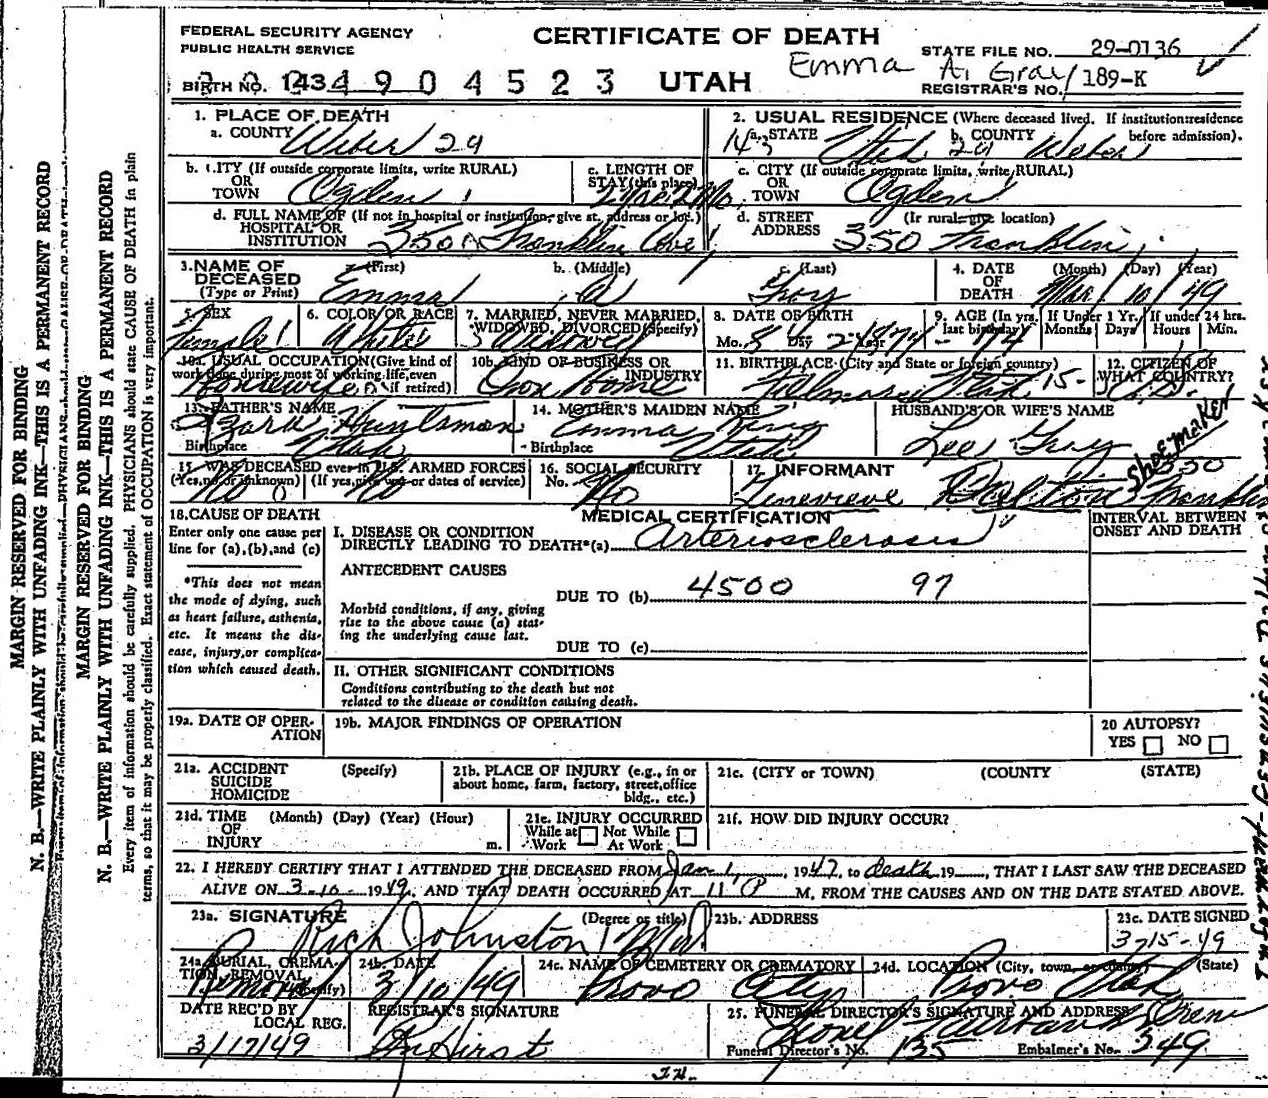 FEDERAL SECURITY AGENCY
PUBLIC HEALTH SERVICE
CERTIFICATE OF DEATH
STATE FILE NO. 29-0136
Emma A. Gray
BIRTH NO. 143 4904523 UTAH
REGISTRAR'S NO. 189-K
1. PLACE OF DEATH
a. COUNTY Weber 29
2. USUAL RESIDENCE (Where deceased lived. If institution: residence before admission).
a. STATE Utah b. COUNTY Weber
b. CITY (If outside corporate limits, write RURAL) OR TOWN Ogden
c. LENGTH OF STAY (this place)
c. CITY (If outside corporate limits, write RURAL) OR TOWN Ogden
d. FULL NAME OF (If not in hospital or institution, give st. address or lot.) HOSPITAL OR INSTITUTION 350 Franklin
d. STREET ADDRESS (If rural give location) 350 Franklin
3. NAME OF DECEASED (Type or Print)
a. (First) Emma b. (Middle) A c. (Last) Gray
4. DATE OF DEATH (Month) (Day) (Year) Mar 10 49
5. SEX Female
6. COLOR OR RACE White
7. MARRIED, NEVER MARRIED, WIDOWED, DIVORCED (Specify) Widowed
8. DATE OF BIRTH Mo. Day Year
9. AGE (In yrs. last birthday) 74
If Under 1 Yr. Months Days
If under 24 hrs. Hours Min.
10a. USUAL OCCUPATION (Give kind of work done during most of working life, even if retired) Housewife
10b. KIND OF BUSINESS OR INDUSTRY Own Home
11. BIRTHPLACE (City and State or foreign country) Fillmore Utah
12. CITIZEN OF WHAT COUNTRY?
13. FATHER'S NAME Huntsman
Birthplace Utah
14. MOTHER'S MAIDEN NAME Emma King
Birthplace Utah
HUSBAND'S OR WIFE'S NAME
Lee Gray
15. WAS DECEASED ever in U.S. ARMED FORCES (Yes, no, or unknown) (If yes, give war or dates of service) No
16. SOCIAL SECURITY No. No
17. INFORMANT
Genevieve Dalton SHOEMAKER 350 Franklin
18. CAUSE OF DEATH
Enter only one cause per line for (a), (b), and (c)
*This does not mean the mode of dying, such as heart failure, asthenia, etc. It means the disease, injury, or complication which caused death.
MEDICAL CERTIFICATION
INTERVAL BETWEEN ONSET AND DEATH
I. DISEASE OR CONDITION
DIRECTLY LEADING TO DEATH*(a) Arteriosclerosis
ANTECEDENT CAUSES
DUE TO (b) 4500 97
Morbid conditions, if any, giving rise to the above cause (a) stating the underlying cause last.
DUE TO (c)
II. OTHER SIGNIFICANT CONDITIONS
Conditions contributing to the death but not
related to the disease or condition causing death.
19a. DATE OF OPERATION
19b. MAJOR FINDINGS OF OPERATION
20 AUTOPSY?
YES NO
21a. ACCIDENT (Specify)
SUICIDE
HOMICIDE
21b. PLACE OF INJURY (e.g., in or about home, farm, factory, street, office bldg., etc.)
21c. (CITY or TOWN) (COUNTY) (STATE)
21d. TIME OF INJURY (Month) (Day) (Year) (Hour) m.
21e. INJURY OCCURRED
While at Work Not While At Work
21f. HOW DID INJURY OCCUR?
22. I HEREBY CERTIFY THAT I ATTENDED THE DECEASED FROM Jan 1, 1947, to death 19, THAT I LAST SAW THE DECEASED
ALIVE ON 3-10-1949, AND THAT DEATH OCCURRED AT 11 P M, FROM THE CAUSES AND ON THE DATE STATED ABOVE.
23a. SIGNATURE (Degree or title) Rich Johnston M.D.
23b. ADDRESS
23c. DATE SIGNED
3-15-49
24a. BURIAL, CREMATION, REMOVAL (Specify) Removal
24b. DATE 3/10/49
24c. NAME OF CEMETERY OR CREMATORY Provo City
24d. LOCATION (City, town, or county) (State) Provo Utah
DATE REC'D BY LOCAL REG.
3/17/49
REGISTRAR'S SIGNATURE
25. FUNERAL DIRECTOR'S SIGNATURE AND ADDRESS
Funeral Director's No. 135 Embalmer's No. 349
MARGIN RESERVED FOR BINDING
N. B.—WRITE PLAINLY WITH UNFADING INK—THIS IS A PERMANENT RECORD
MARGIN RESERVED FOR BINDING
N. B.—WRITE PLAINLY WITH UNFADING INK—THIS IS A PERMANENT RECORD
Every item of information should be carefully supplied. PHYSICIANS should state CAUSE OF DEATH in plain
terms, so that it may be properly classified. Exact statement of OCCUPATION is very important.